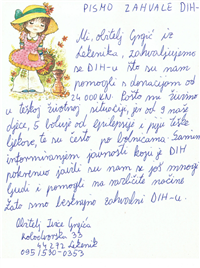 PISMO ZAHVALE DIH-
Mi, obitelj Grgić iz
Lekenika, zahvaljujemo
se DIH-u što su nam
pomogli s donacijom od
24 000 KN. Pošto mi živimo
u teškoj životnoj situaciji, jer od 9 naše
djece, 5 boluje od epilepsije i piju teške
ljekove, te su često po bolnicama. Samim
informiranjem javnosti koju je DIH
pokrenuo javili su nam se još mnogi
ljudi i pomogli na različite načine
Zato smo beskrajno zahvalni DIH-u.
Obitelj Ivice Grgića
Kolodvorska 33
44272 Lekenik
095/590-0353